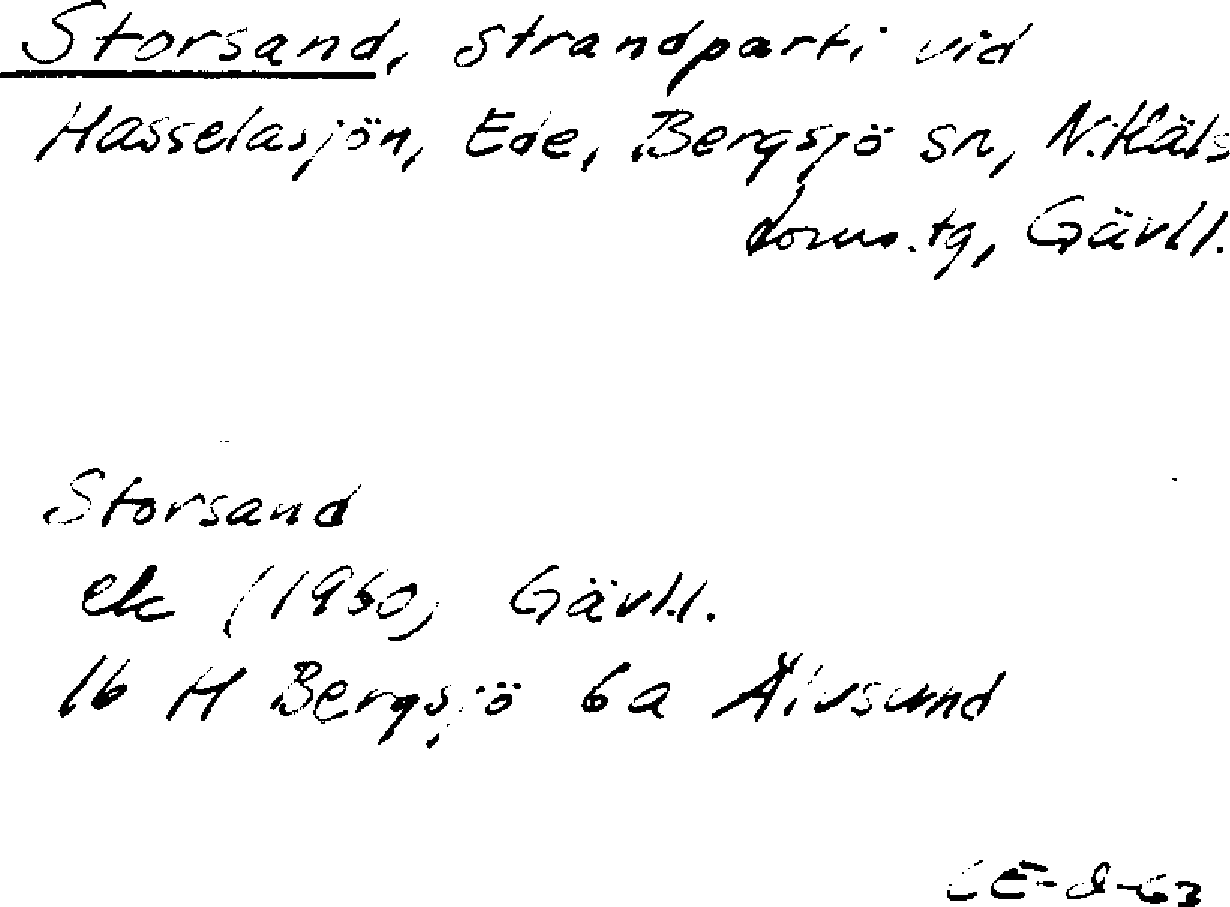 Storsand, strandparti vid
Hasselasjön, Ede, Bergsjö sn, N.Häls
doms.tg, Gävl.l.
Storsand
ek (1960) Gävl.l.
16 H Bergsjö 6a Älvsund